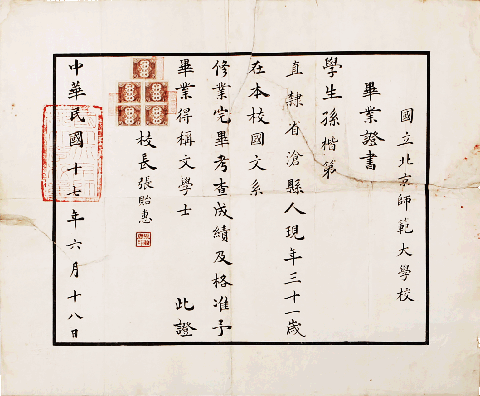 國立北京師範大學校
畢業證書
學生孫楷第
直隸省滄縣人現年三十一歲
在本校國文系
修業完畢考查成績及格准予
畢業得稱文學士
此證
校長張貽惠
中華民國十七年六月十八日